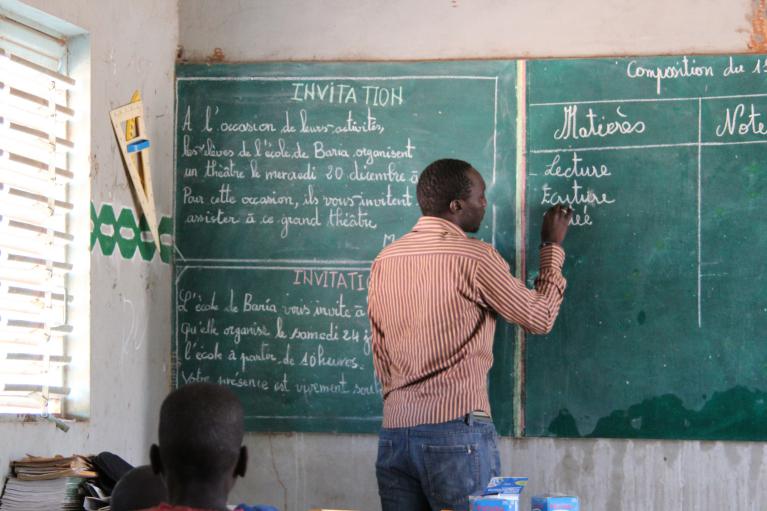 INVITATION
A l'occasion de leurs activités,
les élèves de l'école de Baria organisent
un théâtre le mercredi 20 décembre à
Pour cette occasion, ils vous invitent
assister à ce grand théâtre
INVITATI
L'école de Baria vous invite à
qu'elle organise le samedi 24
l'école à partir de 10 heures.
Votre présence est vivement
Composition du 1
Matières Note
Lecture
Ecriture